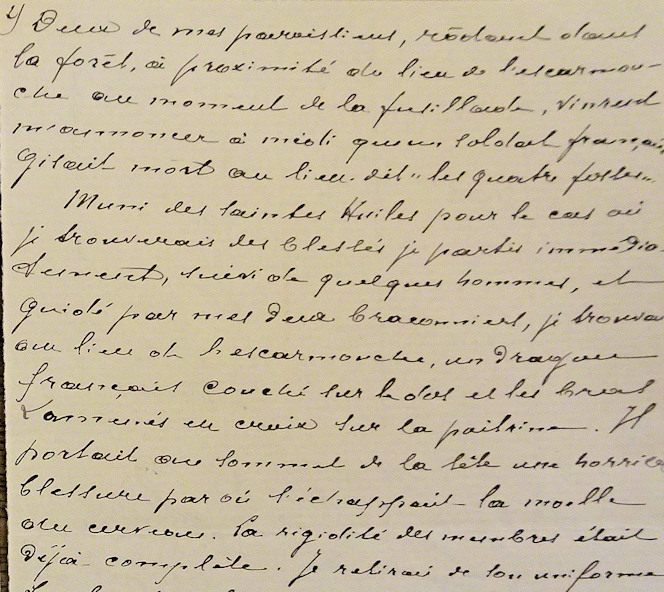 4) Deux de mes paroissiens, rôdant dans
la forêt, à proximité du lieu de l'escarmou-
che au moment de la fusillade, vinrent
m'annoncer à midi qu'un soldat français
gisait mort au lieu-dit "les quatre fostes".
Muni des Saintes Huiles pour le cas où
je trouverais des blessés je partis immédia-
tement, suivi de quelques hommes, et
guidé par mes deux braconniers, je trouvai
au lieu de l'escarmouche, un dragon
français couché sur le dos et les bras
ramenés en croix sur la poitrine. Il
portait au sommet de la tête une horrible
blessure par où s'échappait la moelle
du cerveau. La rigidité des membres était
déjà complète. Je retirai de son uniforme